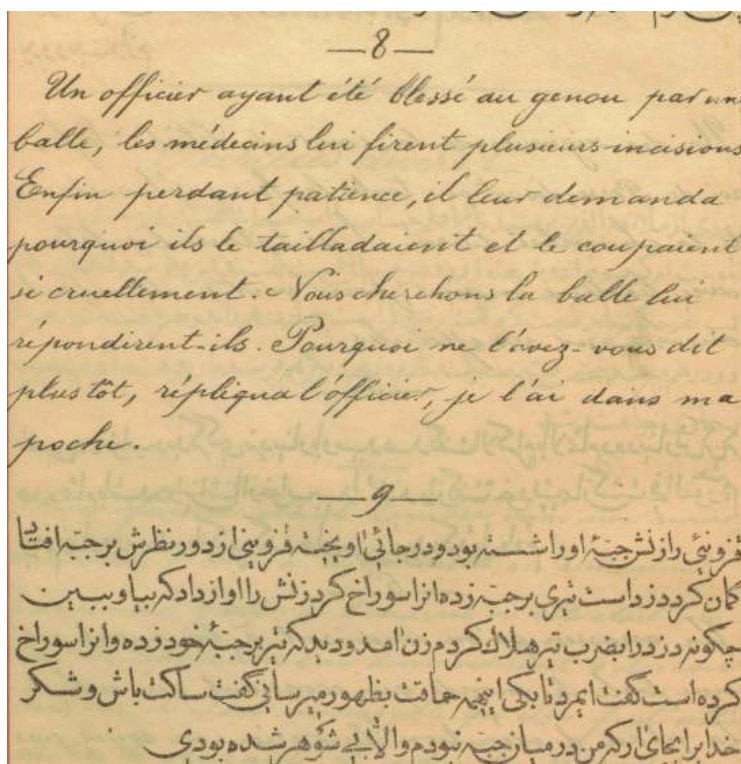 —8—
Un officier ayant été blessé au genou par une
balle, les médecins lui firent plusieurs incisions
Enfin perdant patience, il leur demanda
pourquoi ils le tailladaient et le coupaient
si cruellement. Nous cherchons la balle lui
répondirent-ils. Pourquoi ne l'avez-vous dit
plus tôt, répliqua l'officier, je l'ai dans ma
poche.
—9—
قزوینئی را زنش جبّهٔ او را شسته بود و در جائی اویخته قزوینی از دور نظرش بر جبّه افتاد
گمان کرد دزد است تیری بر جبّه زده انرا سوراخ کرد زنش را اواز داد که بیا و ببین
چگونه دزد را بضرب تیر هلاک کردم زن امد و دید که تیر بر جبّهٔ خود زده و انرا سوراخ
کرده است گفت ایمرد تا بکی اینهمه حماقت بظهور میرسانی گفت ساکت باش و شکر
خدا بر ایجای ار که من در میان جبّه نبودم والّا بی شوهر شده بودی